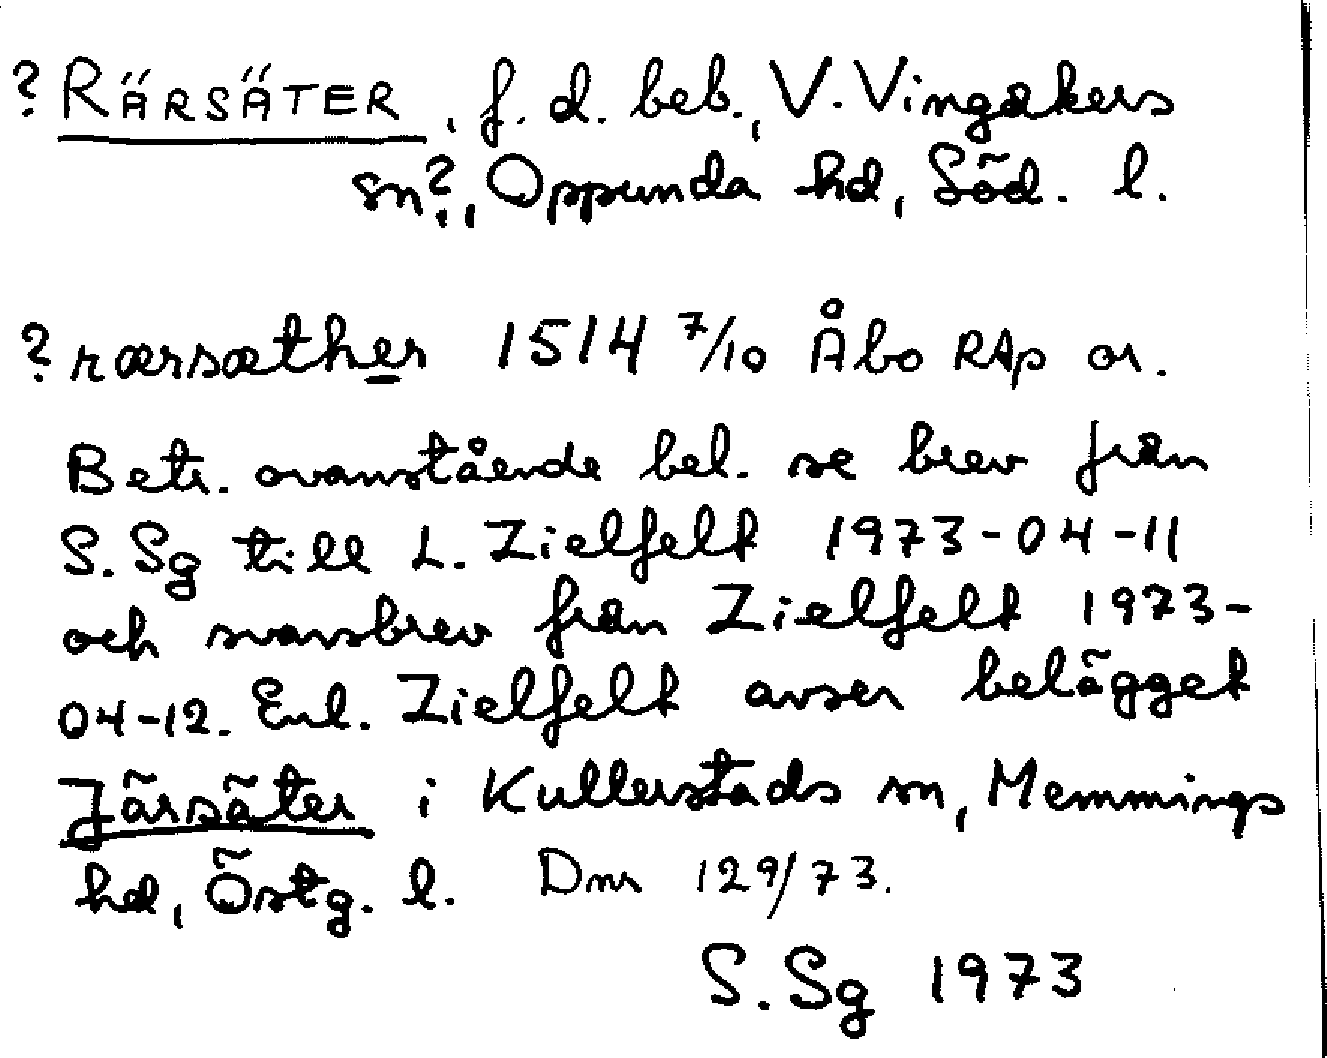 ? RÄRSÄTER, f. d. beb., V. Vingåkers
sn?, Oppunda hd, Söd. l.
? rærsæther 1514 7/10 Åbo RAp or.
Betr. ovanstående bel. se brev från
S. Sg till L. Zielfelt 1973-04-11
och svarsbrev från Zielfelt 1973-
04-12. Enl. Zielfelt avser belägget
Järsäter i Kullerstads sn, Memmings
hd, Östg. l. Dnr 129/73.
S. Sg 1973